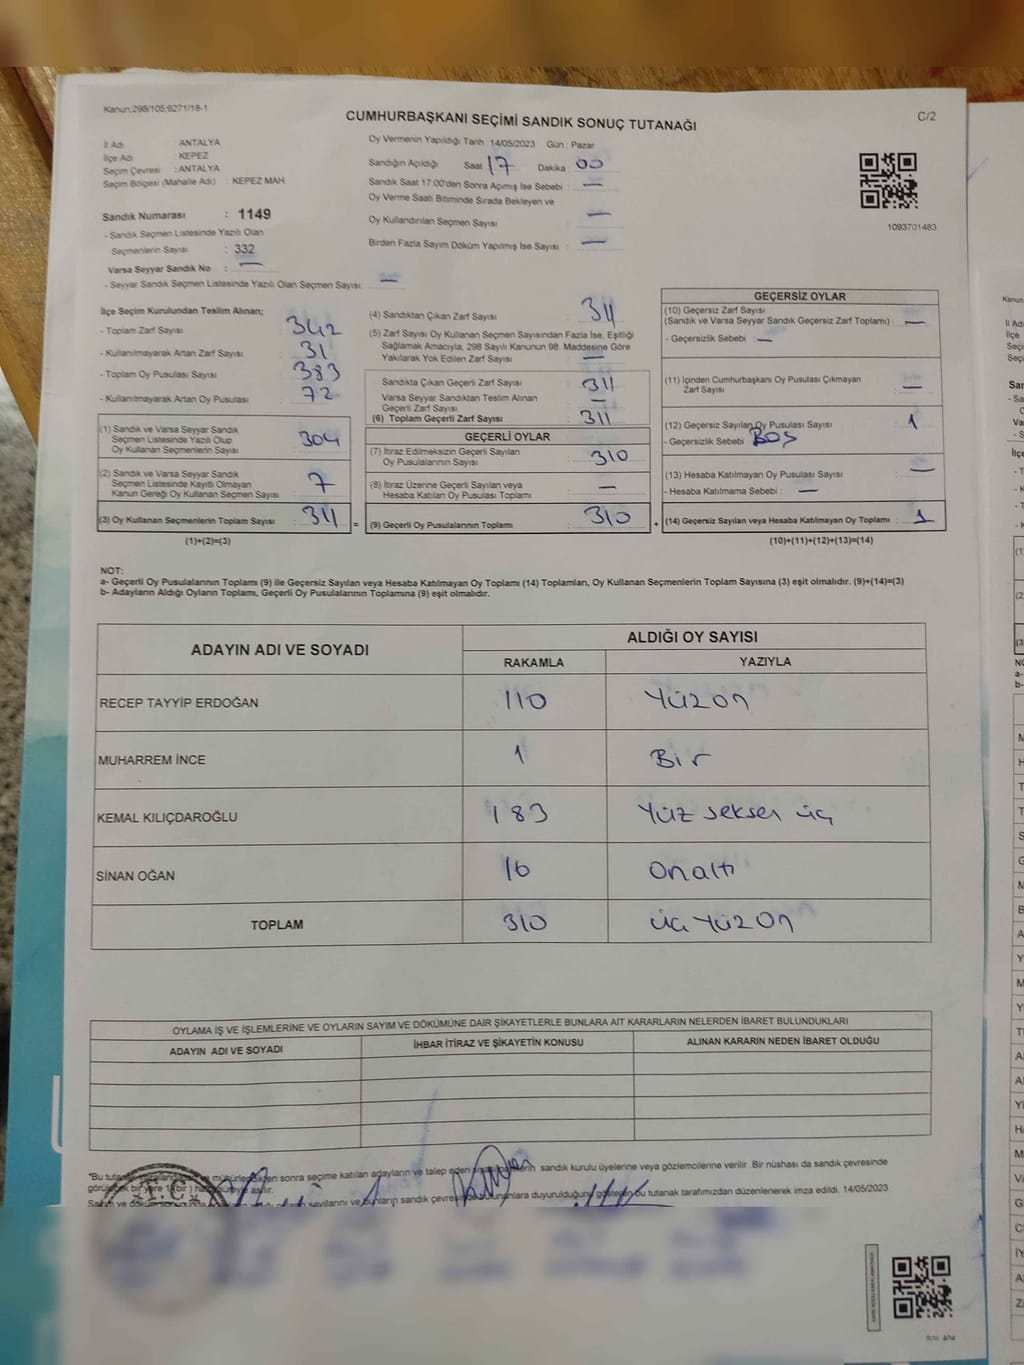 Kanun.298/105;6271/18-1
C/2
CUMHURBAŞKANI SEÇİMİ SANDIK SONUÇ TUTANAĞI
İl Adı ANTALYA
İlçe Adı KEPEZ
Seçim Çevresi : ANTALYA
Seçim Bölgesi (Mahalle Adı) : KEPEZ MAH.
Sandık Numarası : 1149
- Sandık Seçmen Listesinde Yazılı Olan
Seçmenlerin Sayısı : 332
Varsa Seyyar Sandık No : —
- Seyyar Sandık Seçmen Listesinde Yazılı Olan Seçmen Sayısı —
Oy Vermenin Yapıldığı Tarih : 14/05/2023 Gün : Pazar
Sandığın Açıldığı Saat 17 Dakika : 00
Sandık Saat 17:00'den Sonra Açılmış İse Sebebi : —
Oy Verme Saati Bitiminde Sırada Bekleyen ve
Oy Kullandırılan Seçmen Sayısı —
Birden Fazla Sayım Döküm Yapılmış İse Sayısı : —
1093701483
İlçe Seçim Kurulundan Teslim Alınan;
- Toplam Zarf Sayısı 342
- Kullanılmayarak Artan Zarf Sayısı 31
- Toplam Oy Pusulası Sayısı 383
- Kullanılmayarak Artan Oy Pusulası 72
(1) Sandık ve Varsa Seyyar Sandık
Seçmen Listesinde Yazılı Olup
Oy Kullanan Seçmenlerin Sayısı 304
(2) Sandık ve Varsa Seyyar Sandık
Seçmen Listesinde Kayıtlı Olmayan
Kanun Gereği Oy Kullanan Seçmen Sayısı 7
(3) Oy Kullanan Seçmenlerin Toplam Sayısı : 311
(1)+(2)=(3)
(4) Sandıktan Çıkan Zarf Sayısı 311
(5) Zarf Sayısı Oy Kullanan Seçmen Sayısından Fazla İse, Eşitliği
Sağlamak Amacıyla, 298 Sayılı Kanunun 98. Maddesine Göre
Yakılarak Yok Edilen Zarf Sayısı —
Sandıkta Çıkan Geçerli Zarf Sayısı 311
Varsa Seyyar Sandıktan Teslim Alınan
Geçerli Zarf Sayısı —
(6) Toplam Geçerli Zarf Sayısı 311
GEÇERLİ OYLAR
(7) İtiraz Edilmeksizin Geçerli Sayılan
Oy Pusulalarının Sayısı 310
(8) İtiraz Üzerine Geçerli Sayılan veya
Hesaba Katılan Oy Pusulası Toplamı —
= (9) Geçerli Oy Pusulalarının Toplamı 310 +
GEÇERSİZ OYLAR
(10) Geçersiz Zarf Sayısı
(Sandık ve Varsa Seyyar Sandık Geçersiz Zarf Toplamı) : —
- Geçersizlik Sebebi : —
(11) İçinden Cumhurbaşkanı Oy Pusulası Çıkmayan
Zarf Sayısı —
(12) Geçersiz Sayılan Oy Pusulası Sayısı 1
- Geçersizlik Sebebi Boş
(13) Hesaba Katılmayan Oy Pusulası Sayısı —
- Hesaba Katılmama Sebebi : —
(14) Geçersiz Sayılan veya Hesaba Katılmayan Oy Toplamı : 1
(10)+(11)+(12)+(13)=(14)
NOT:
a- Geçerli Oy Pusulalarının Toplamı (9) ile Geçersiz Sayılan veya Hesaba Katılmayan Oy Toplamı (14) Toplamları, Oy Kullanan Seçmenlerin Toplam Sayısına (3) eşit olmalıdır. (9)+(14)=(3)
b- Adayların Aldığı Oyların Toplamı, Geçerli Oy Pusulalarının Toplamına (9) eşit olmalıdır.
ADAYIN ADI VE SOYADI
ALDIĞI OY SAYISI
RAKAMLA YAZIYLA
RECEP TAYYİP ERDOĞAN 110 Yüzon
MUHARREM İNCE 1 Bir
KEMAL KILIÇDAROĞLU 183 Yüz seksen üç
SİNAN OĞAN 16 Onaltı
TOPLAM 310 Üç Yüz On
OYLAMA İŞ VE İŞLEMLERİNE VE OYLARIN SAYIM VE DÖKÜMÜNE DAİR ŞİKAYETLERLE BUNLARA AİT KARARLARIN NELERDEN İBARET BULUNDUKLARI
ADAYIN ADI VE SOYADI İHBAR İTİRAZ VE ŞİKAYETİN KONUSU ALINAN KARARIN NEDEN İBARET OLDUĞU
mühürlendikten sonra seçime katılan adayların ve talep eden sandık kurulu üyelerine veya gözlemcilerine verilir .Bir nüshası da sandık çevresinde
bu tutanak tarafımızdan düzenlenerek imza edildi. 14/05/2023
T.C.